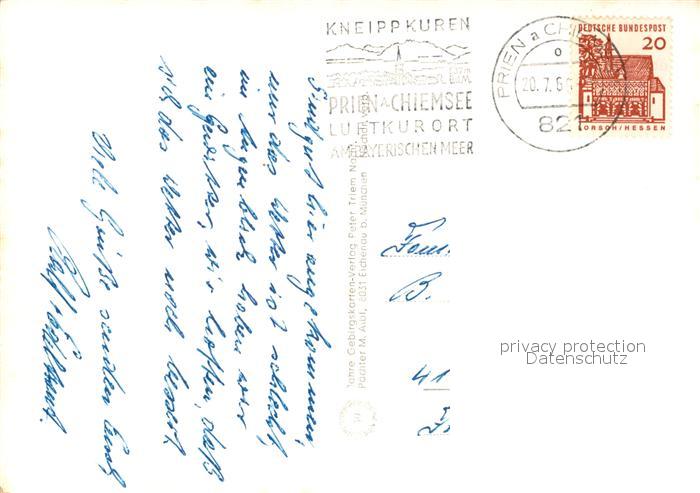 KNEIPPKUREN
PRIEN A CHIEMSEE
LUFTKURORT
AM BAYERISCHEN MEER
PRIEN a CHIEMSEE
20.7.6
821
DEUTSCHE BUNDESPOST
20
LORSCH/HESSEN
Sind gut hier angekommen,
nur das Wetter ist schlecht,
im Augenblick haben wir
ein Gewitter, wir hoffen, daß
sich das Wetter noch bessert.
Viele Grüße senden Euch
Jahre Gebirgskarten-Verlag Peter Triem
Pächter M. Aubl, 8031 Eichenau b. München
Fam.
B.
41
privacy protection
Datenschutz